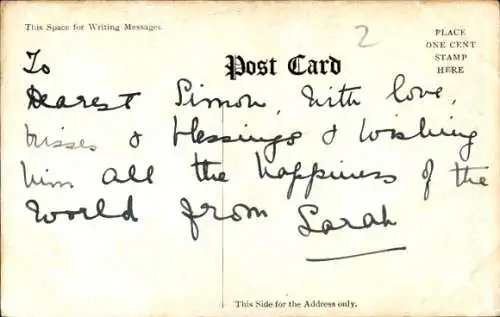 This Space for Writing Messages.
2
PLACE
ONE CENT
STAMP
HERE
Post Card
To
Dearest Simon, With love,
kisses & blessings & wishing
him all the happiness of the
World from Sarah
This Side for the Address only.